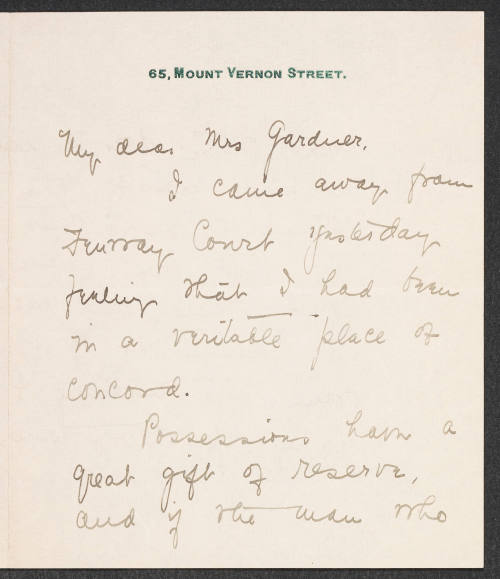 65, MOUNT VERNON STREET.
My dear Mrs Gardner,
I came away from
Fenway Court yesterday
feeling that I had been
in a veritable place of
concord.
Possessions have a
great gift of reserve,
and if the man who